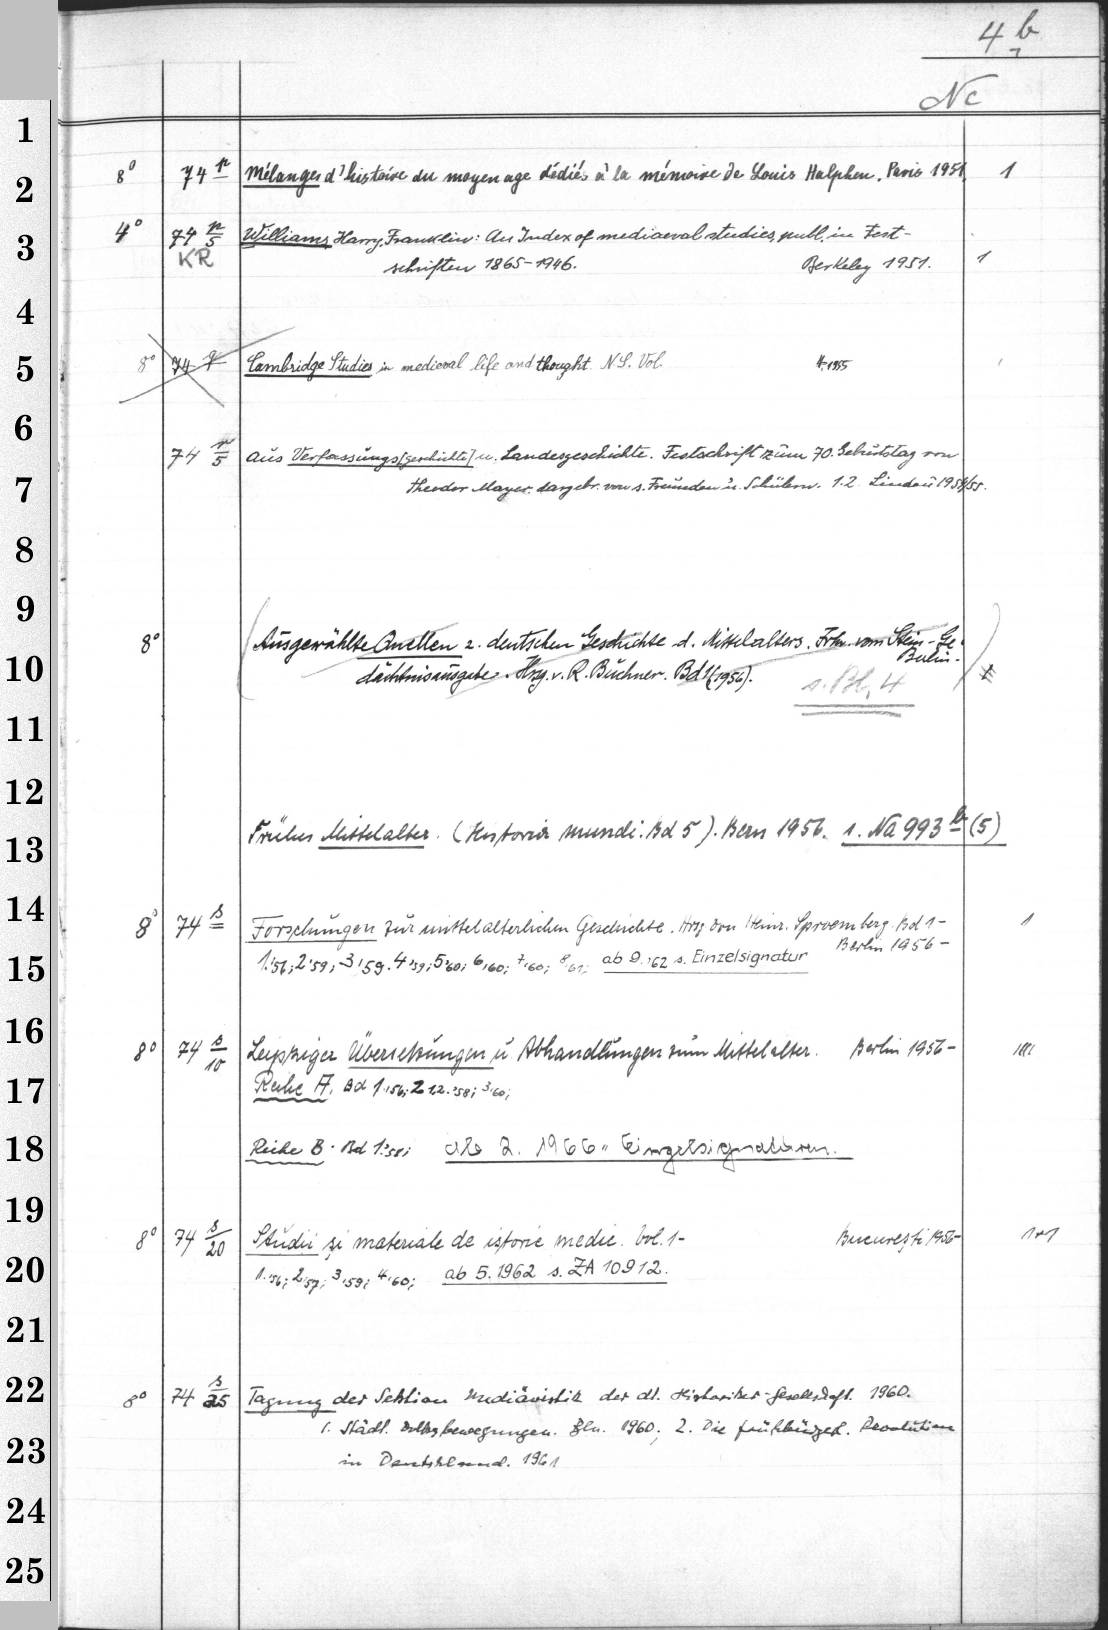 4 b
Nc
8° 74 p Mélanges d'histoire du moyen age dédiés à la mémoire de Louis Halphen, Paris 1951 1
4° 74 p/5 Williams, Harry Franklin: An Index of mediaeval studies publ. in Fest-
KR schriften 1865-1946. Berkeley 1951. 1
8° 74 q Cambridge Studies in medieval life and thought N.S. Vol. 4.1955
74 r/5 Aus Verfassungs[geschichte] u. Landesgeschichte. Festschrift zum 70. Geburtstag von
Theodor Mayer dargebr. von s. Freunden u. Schülern. 1.2 Lindau 1954/55.
8° (Ausgewählte Quellen z. deutschen Geschichte d. Mittelalters. Frhr. vom Stein-Ge-
dächtnisausgabe. Hrsg. v. R. Buchner. Bd 1(1956). Berlin.)
s. Bl. 4
Frühes Mittelalter. (Historia mundi. Bd 5). Bern 1956. s. Na 993 b (5)
8° 74 s Forschungen zur mittelalterlichen Geschichte. Hrsg von Heinr. Sproemberg. Bd 1- 1
Berlin 1956-
1.'56; 2'59; 3'59. 4'59; 5'60; 6'60; 7'60; 8'61; ab 9.'62 s. Einzelsignatur
8° 74 s/10 Leipziger Übersetzungen u Abhandlungen zum Mittelalter. Berlin 1956-
Reihe A. Bd 1.'56; 2 1.2.'58; 3'60;
Reihe B. Bd 1.'58; ab 2. 1966 " Einzelsignaturen.
8° 74 s/20 Studii și materiale de istorie medie. Vol. 1- București 1956- 1+1
1.'56; 2'57; 3'59; 4'60; ab 5.1962 s. ZA 10912.
8° 74 s/25 Tagung der Sektion Mediävistik der dt. Historiker-Gesellschaft. 1960.
1. Städt. Volksbewegungen. Bln. 1960; 2. Die frühbürgerl. Revolution
in Deutschland. 1961
1
2
3
4
5
6
7
8
9
10
11
12
13
14
15
16
17
18
19
20
21
22
23
24
25